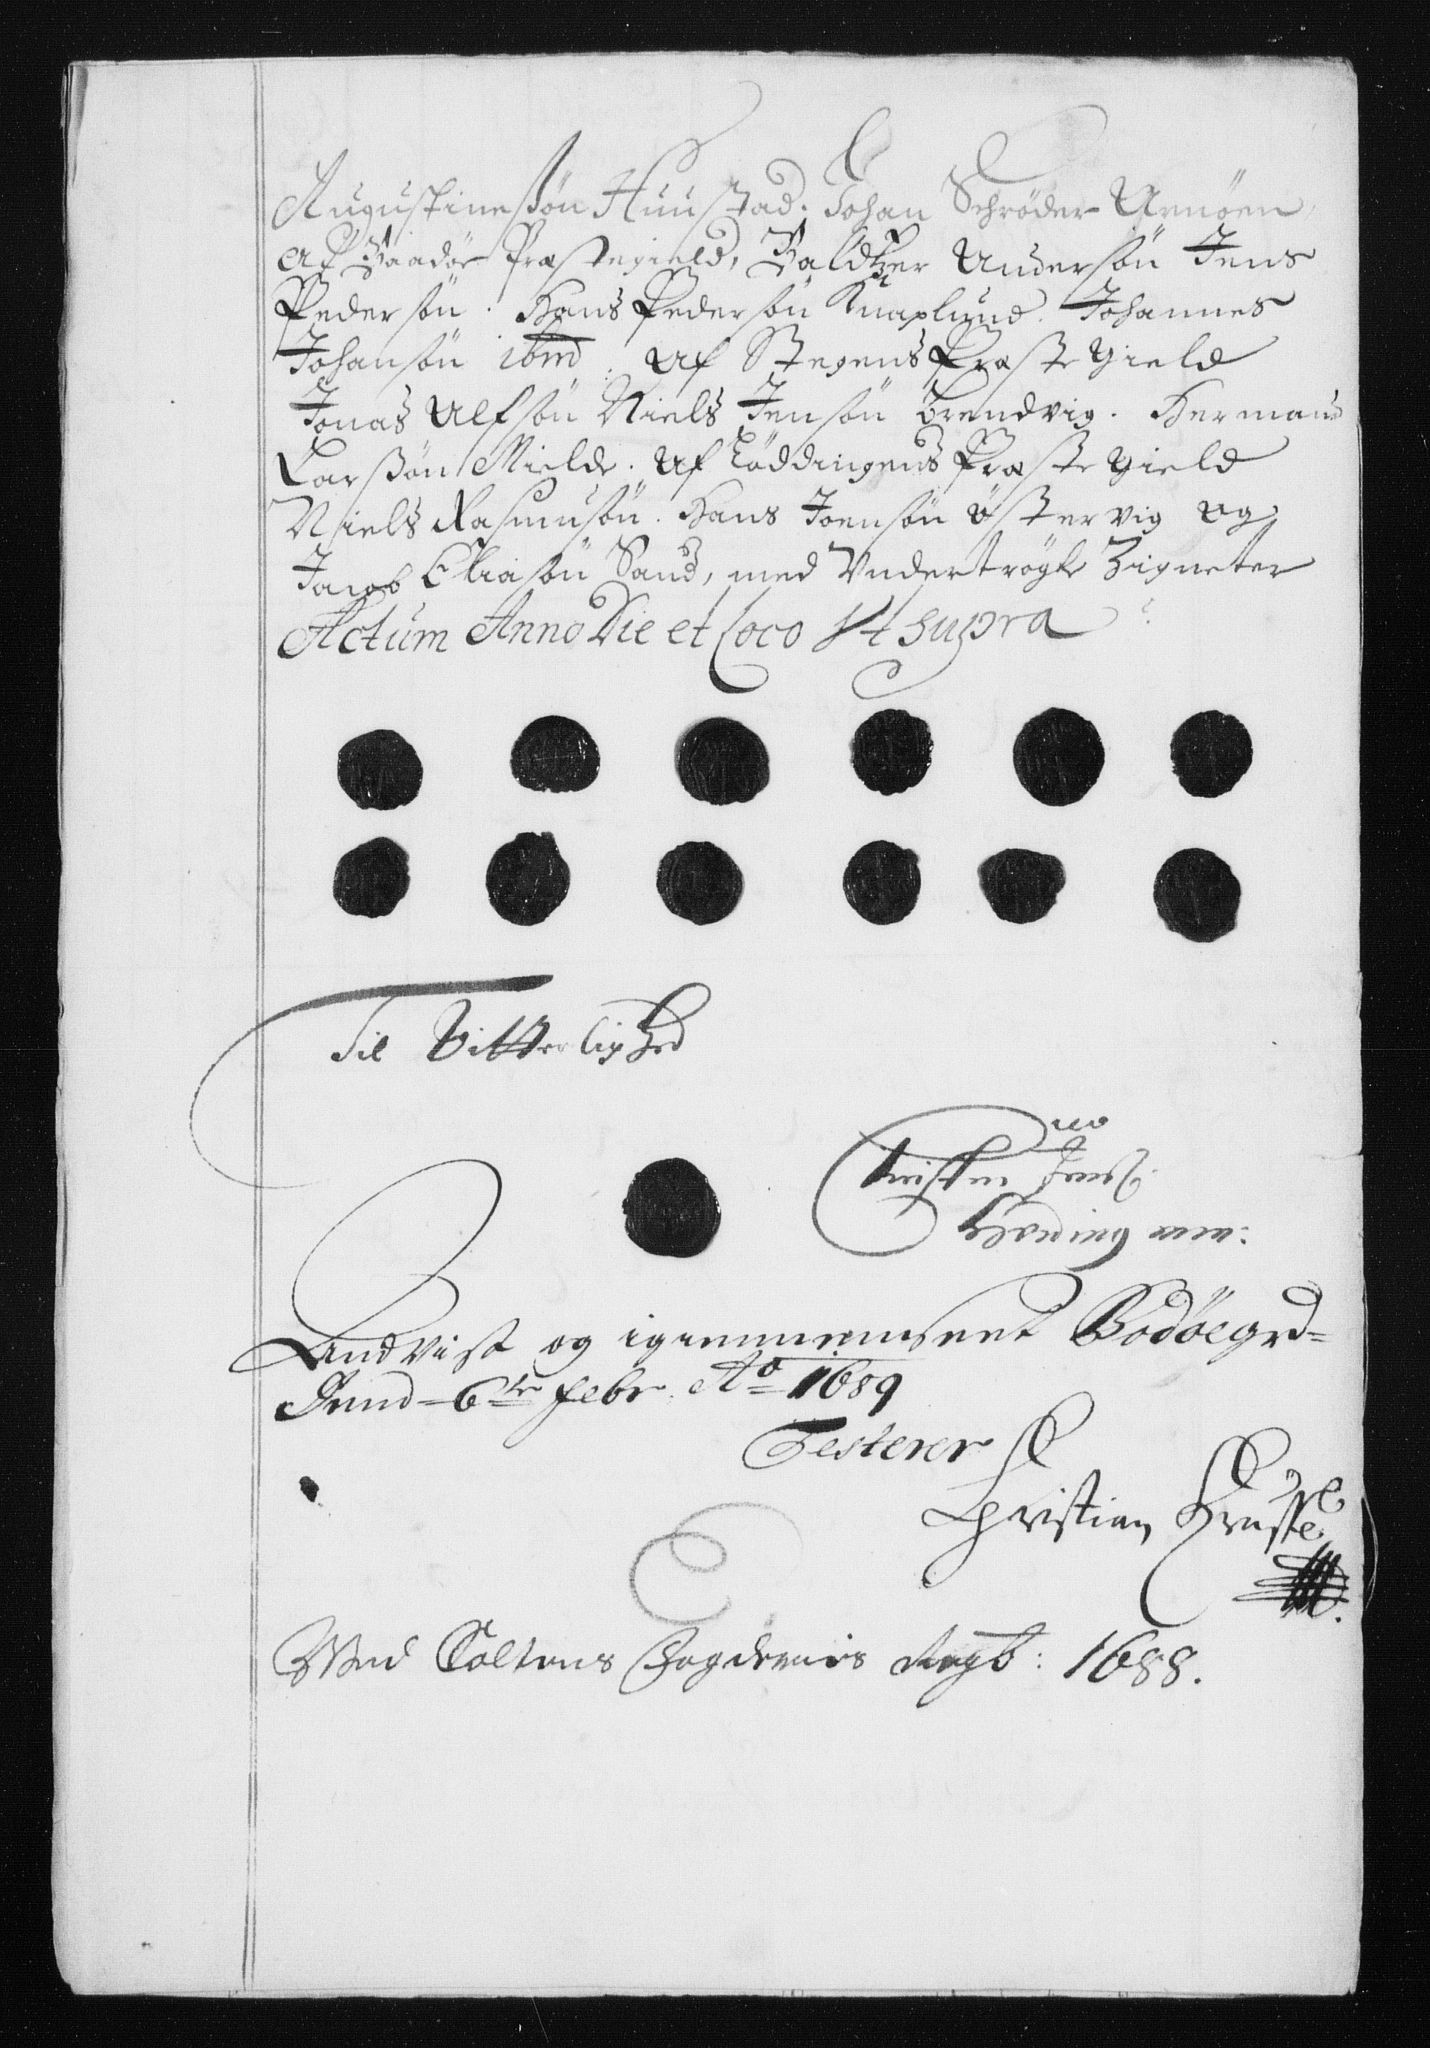 Augustinesøn Huustad. Johan Schrøder Arnøen,
Af Baadøe Præstegield, Baldtzer Andersøn Jens
Pedersøn. Hans Pedersøn Knaplund. Johannes
Johansøn ibm̄d. Af Stegens Præstegield
Jonas Ulfsøn Niels Jensøn Brendvig. Herman
Larssøn Mielde. Af Løddingens Præstegield
Niels Rasmusøn. Hans Joensøn Østervig og
Jacob Eliasøn Sand, med Vndertrøgte Zigneter
Actum Anno Die et loco Ut supra
Til Vitterlighed
Christen Jenss:
Hveding mm:
Landvist og igiennemseet Bodøegrd=
Grund 6te febr. Ao 1689
Testerer
Christian Kruse
Ved Saltens Fogderies Regb: 1688.